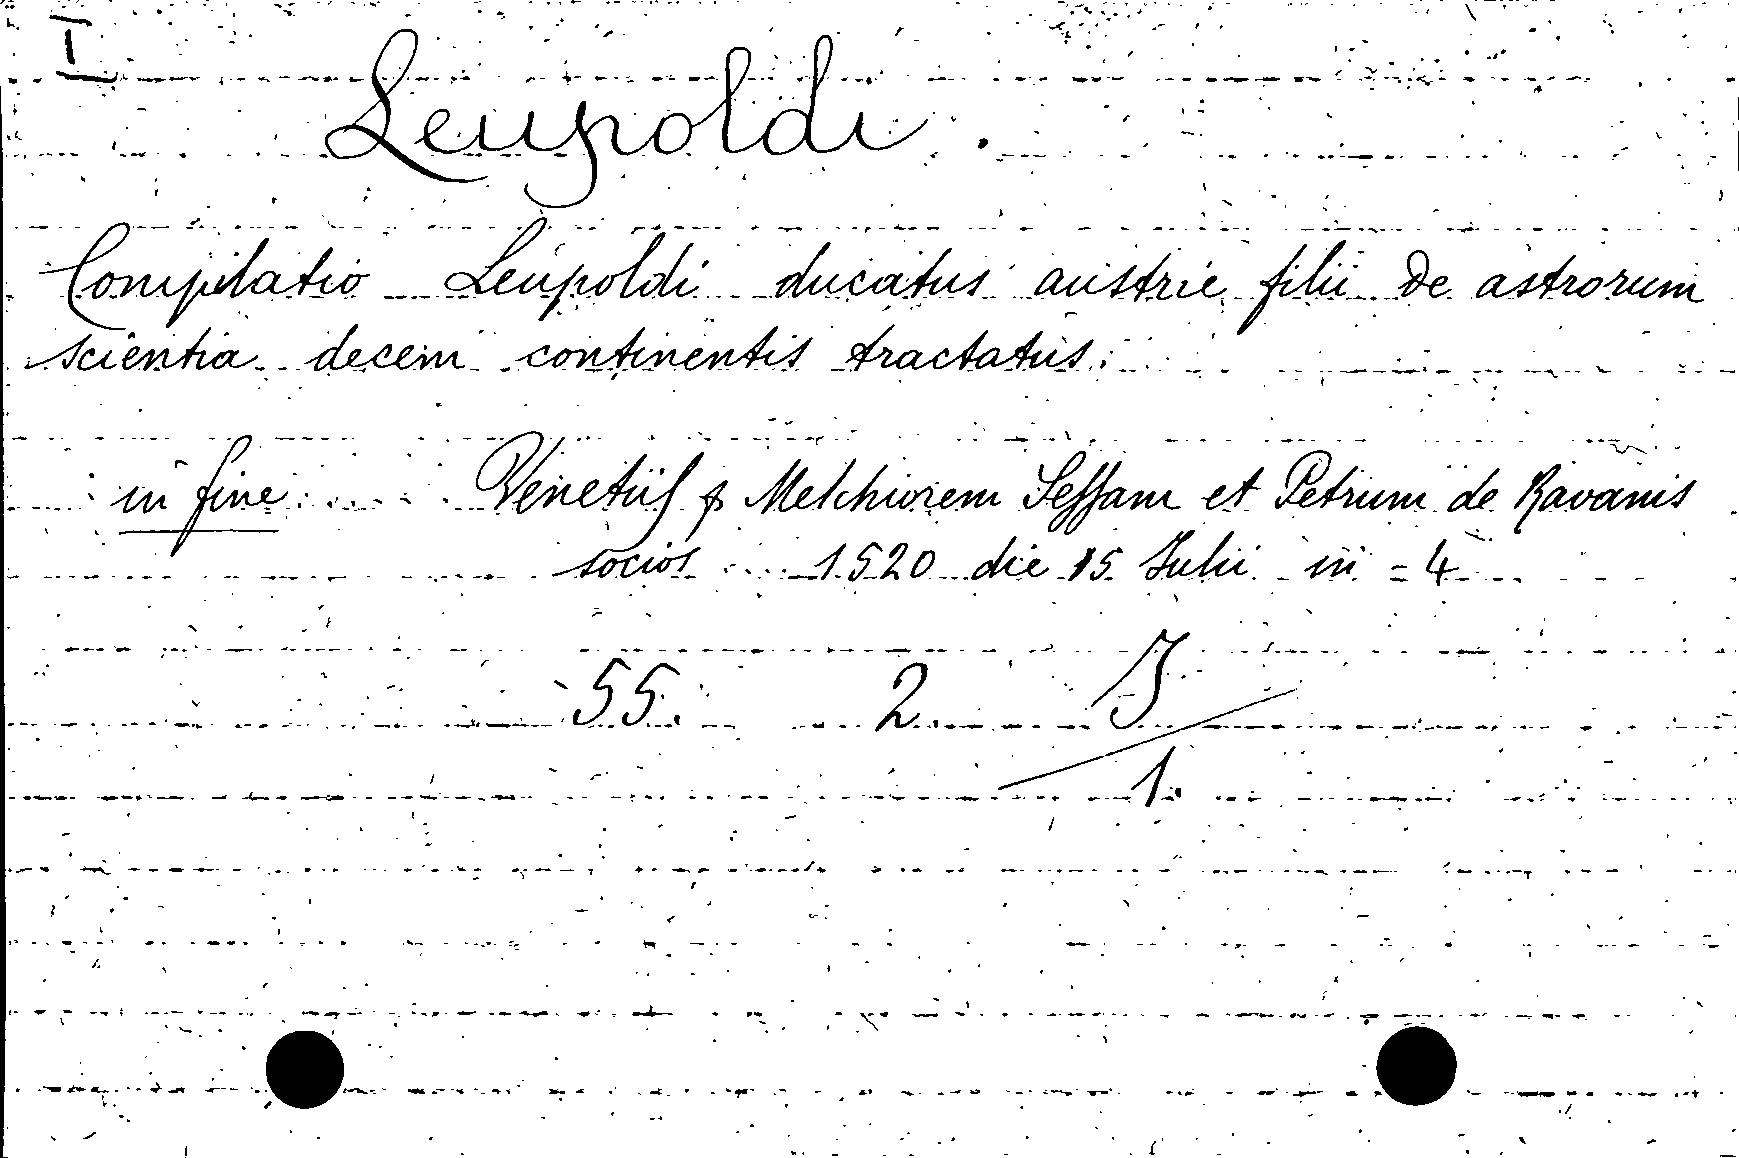 I
Leupoldi.
Compilatio Leupoldi ducatus austrie filii de astrorum
scientia decem continentis tractatus.
in fine: Venetiis p Melchiorem Sessam et Petrum de Ravanis
socios 1520 die 15 Julii in-4
55. 2. J
1.